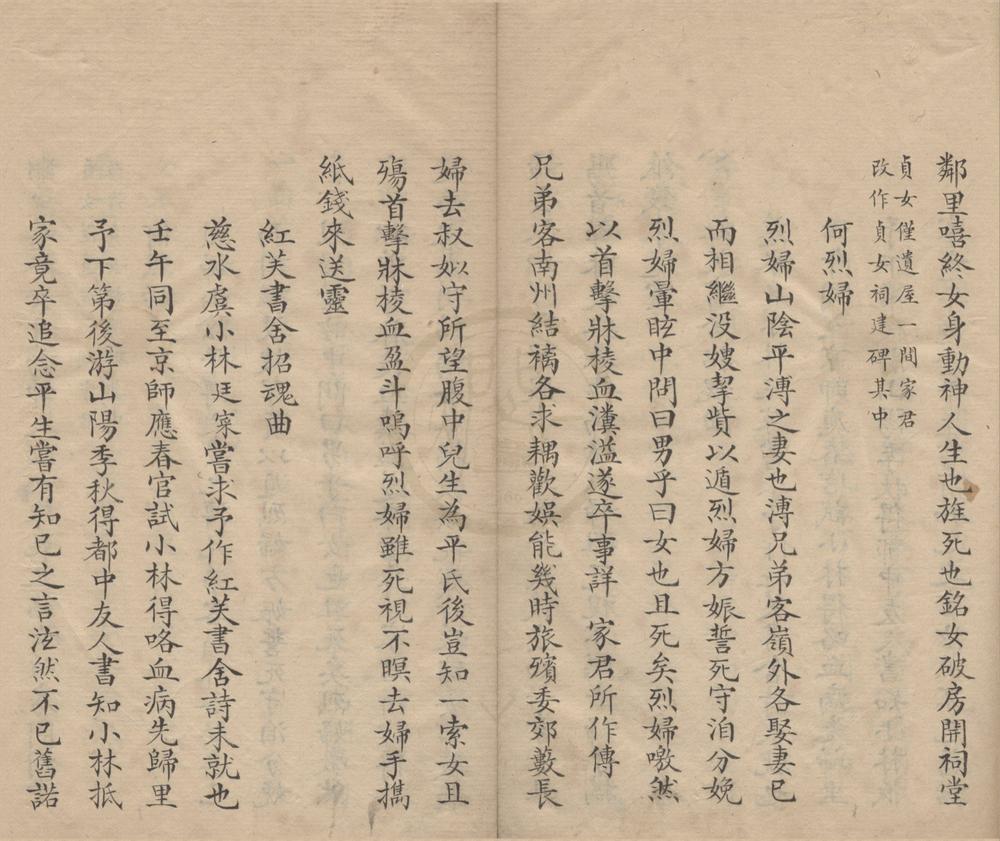 鄰里嘻終女身動神人生也旌死也銘女破房開祠堂
貞女僅遺屋一間家君
改作貞女祠建碑其中
何烈婦
烈婦山陰平溥之妻也溥兄弟客嶺外各娶妻已
而相繼没嫂挈貲以遁烈婦方娠誓死守洎分娩
烈婦暈眩中問曰男乎曰女也且死矣烈婦噭然
以首擊牀棱血瀵溢遂卒事詳 家君所作傳
兄弟客南州結褵各求耦歡娛能幾時旅殯委郊藪長
婦去叔姒守所望腹中兒生為平氏後豈知一索女且
殤首擊牀棱血盈斗嗚呼烈婦雖死視不暝去婦手擕
紙錢來送靈
紅芙書舍招魂曲
慈水虞小林廷寀嘗求予作紅芙書舍詩未就也
壬午同至京師應春官試小林得咯血病先歸里
予下第後游山陽季秋得都中友人書知小林抵
家竟卒追念平生嘗有知已之言泫然不已舊諾